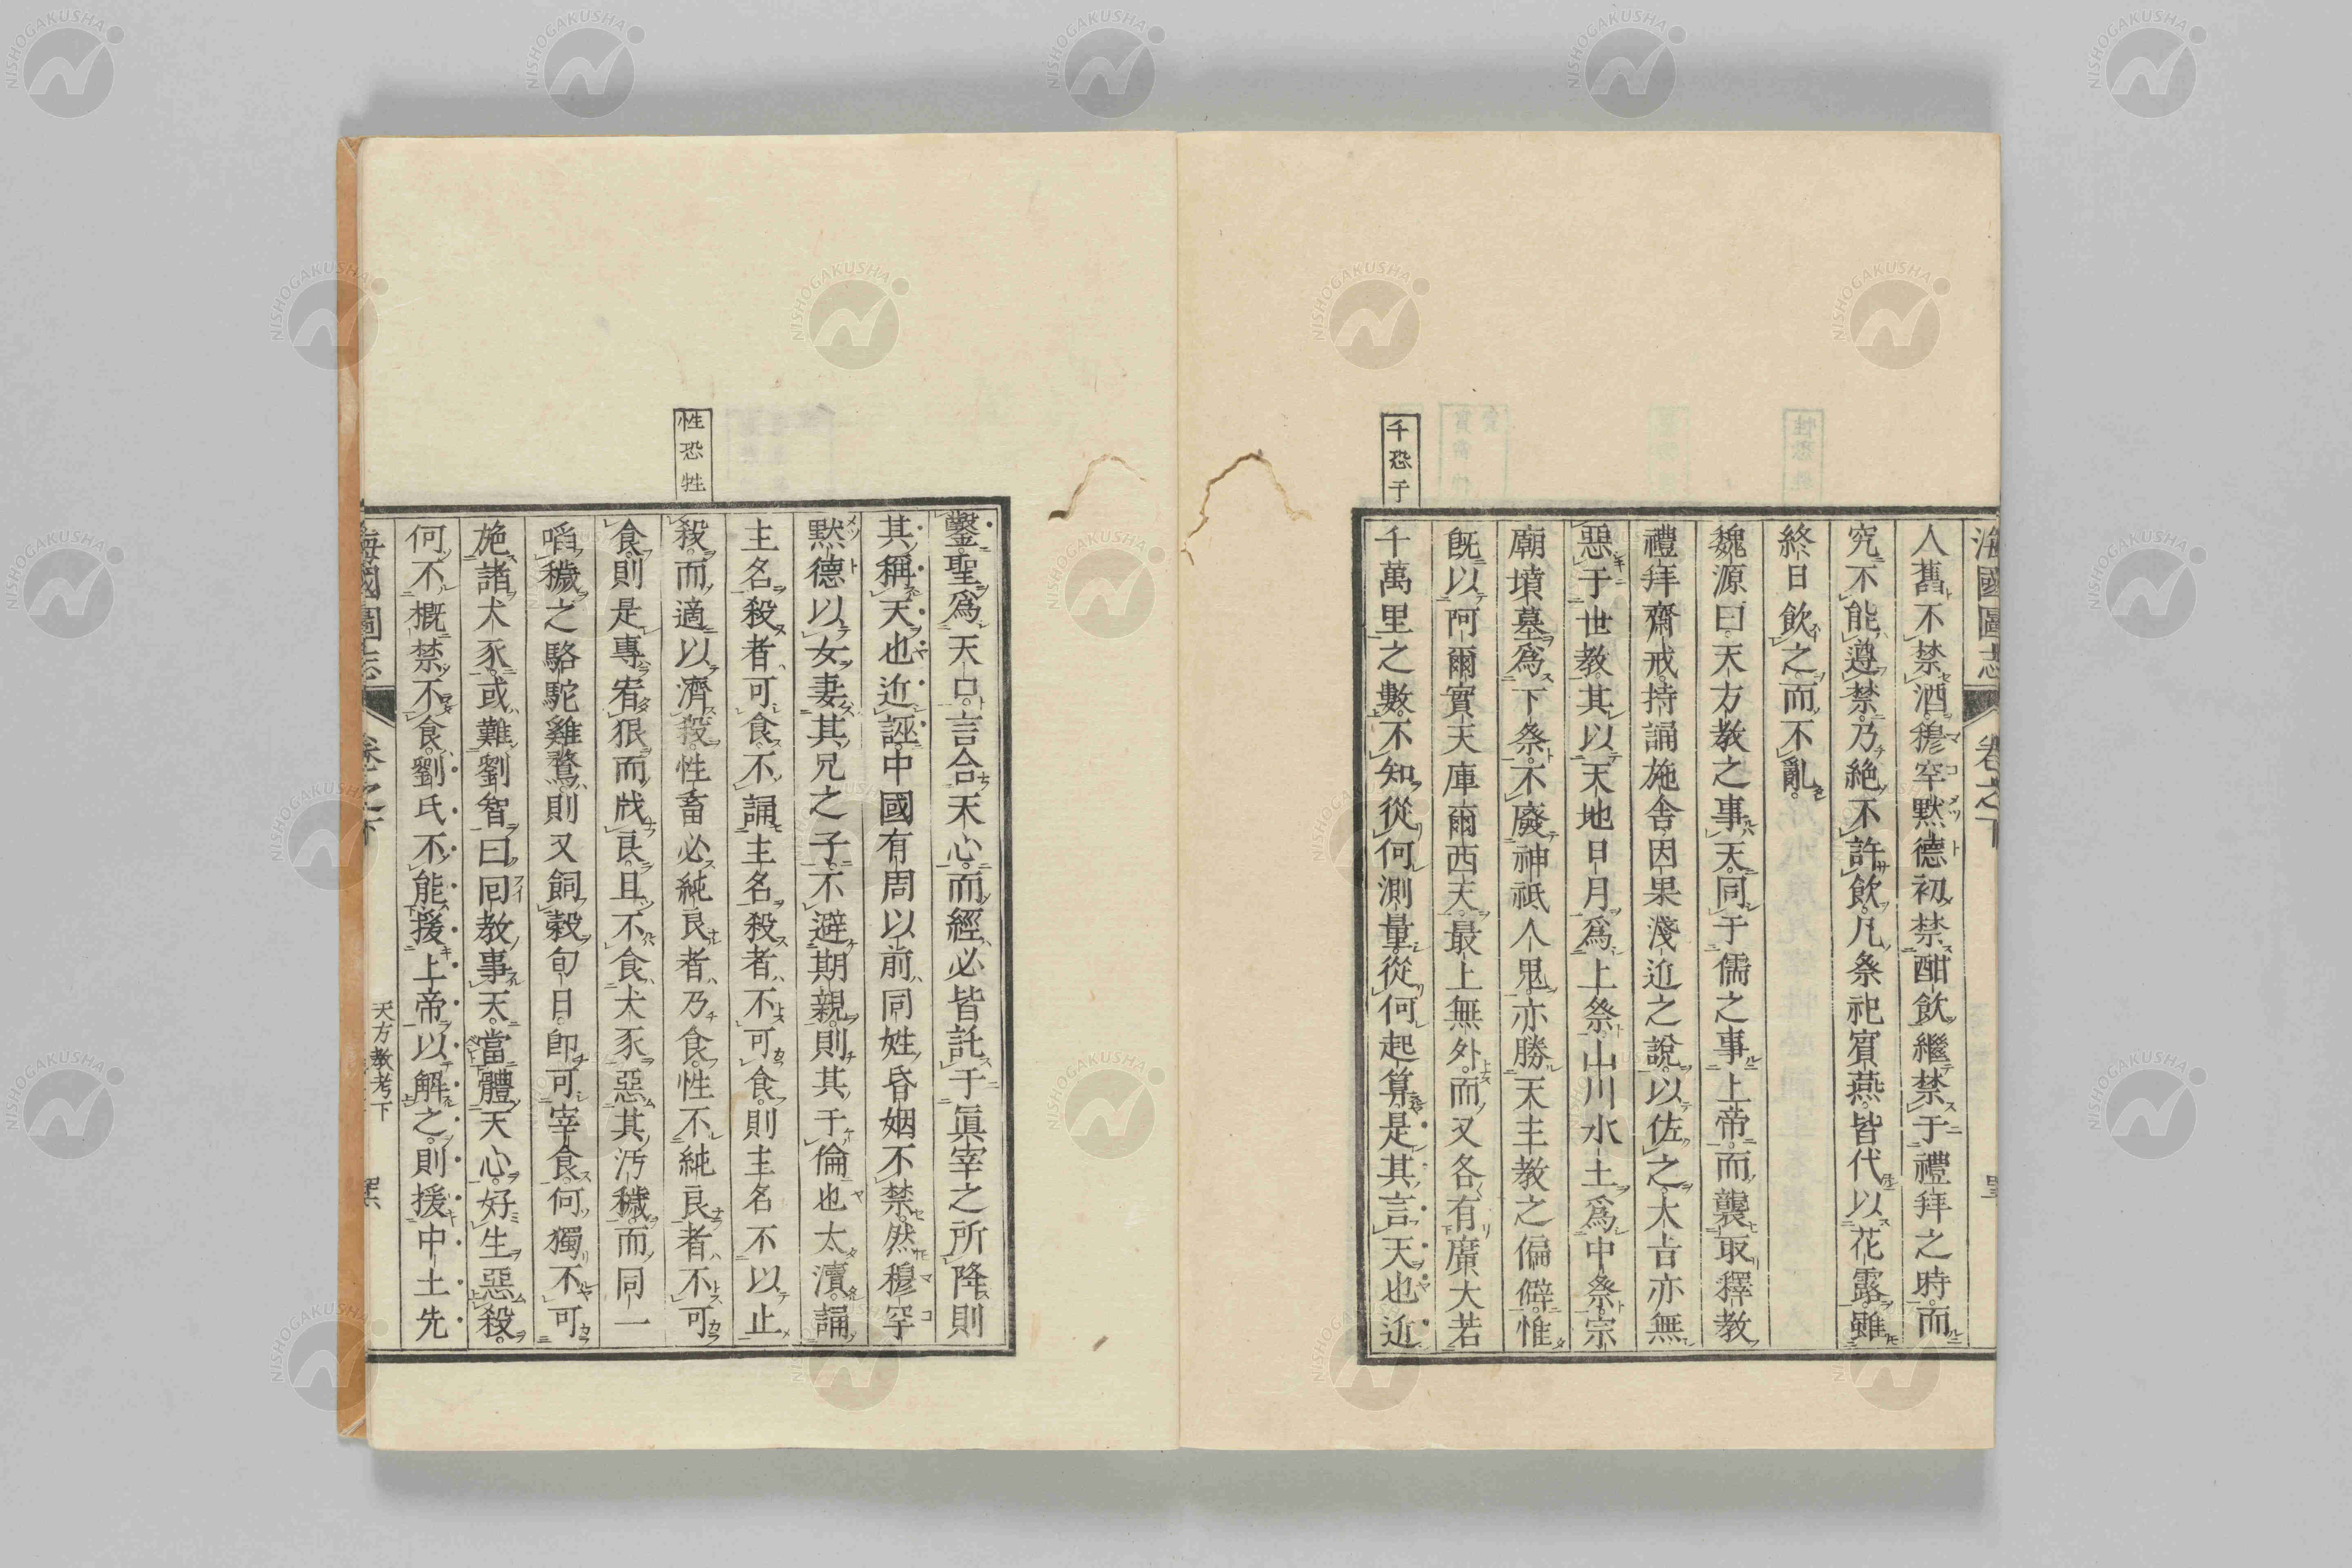 海國圖志 卷之下
人舊不禁酒穆罕默德初禁酣飲繼禁于禮拜之時而
究不能遵禁乃絶不許飲凡祭祀賓燕皆代以花露雖
終日飲之而不亂
魏源曰天方教之事天同于儒之事上帝而襲取釋教
禮拜齋戒持誦施舍因果淺近之說以佐之大㫖亦無
惡于世教其以天地日月爲上祭山川水土爲中祭宗
廟墳墓爲下祭不廢神祇人鬼亦勝天主教之偏僻惟
既以阿爾實天庫爾西天最上無外而又各有廣大若
千恐于
千萬里之數不知從何測量從何起算是其言天也近
鑿聖爲天口言合天心而經必皆託于眞宰之所降則
其稱天也近誣中國有周以前同姓昏姻不禁然穆罕
默德以女妻其兄之子不避期親則其千倫也太瀆誦
主名殺者可食不誦主名殺者不可食則主名不以止
性恐牲
殺而適以濟殺性畜必純良者乃食性不純良者不可
食則是專宥狠而戕良且不食犬豕惡其汚穢而同一
㗖穢之駱駝雞鶩則又飼穀旬日卽可宰食何獨不可
施諸犬豕或難劉智曰囘教事天當體天心好生惡殺
何不槪禁不食劉氏不能援上帝以解之則援中土先
海國圖志 卷之下 天方教考下
NISHOGAKUSHA